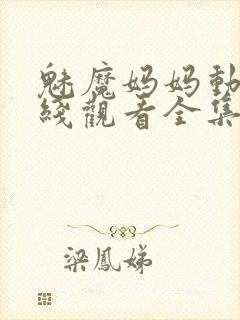 魅魔妈妈動
綫觀看全集
梁鳳娣